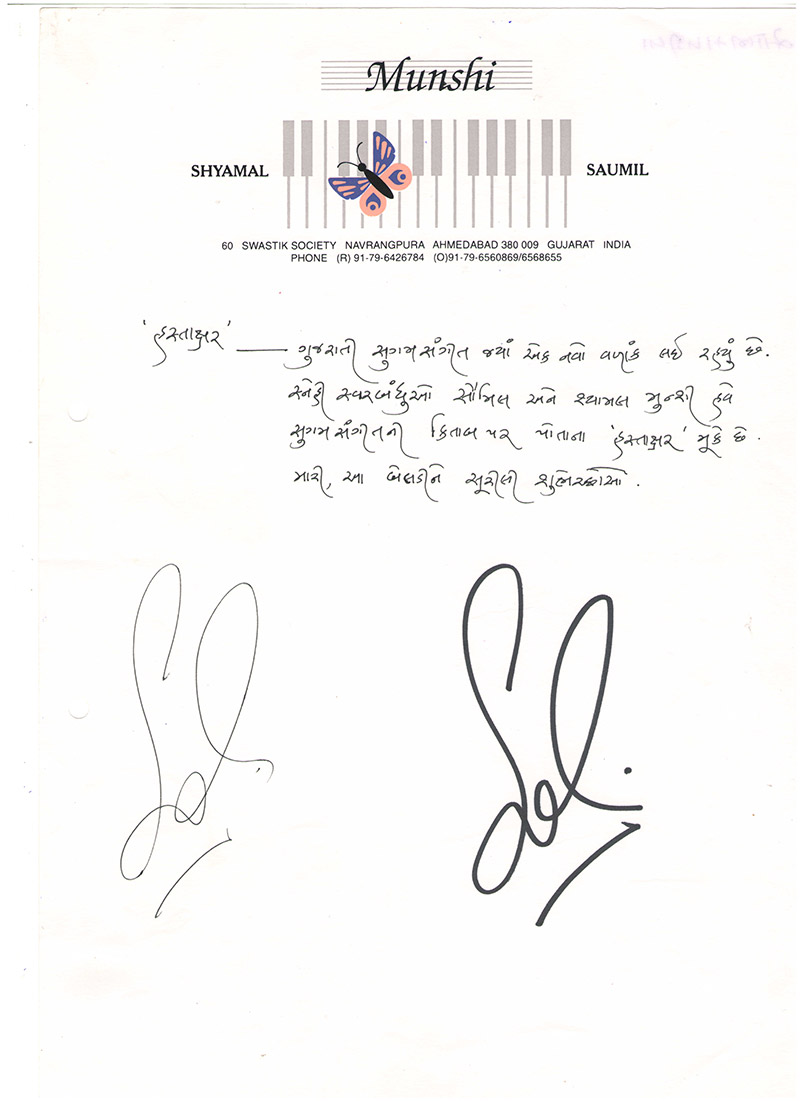 Munshi
SHYAMAL SAUMIL
60 SWASTIK SOCIETY NAVRANGPURA AHMEDABAD 380 009 GUJARAT INDIA
PHONE (R) 91-79-6426784 (O)91-79-6560869/6568655
'હસ્તાક્ષર' — ગુજરાતી સુગમ સંગીત જ્યાં એક નવો વળાંક લઈ રહ્યું છે.
સ્નેહી સ્વરબંધુઓ સૌમિલ અને શ્યામલ મુન્શી હવે
સુગમ સંગીતની કિતાબ પર પોતાના 'હસ્તાક્ષર' મૂકે છે.
મારી, આ બેલડીને સૂરીલી શુભેચ્છાઓ.